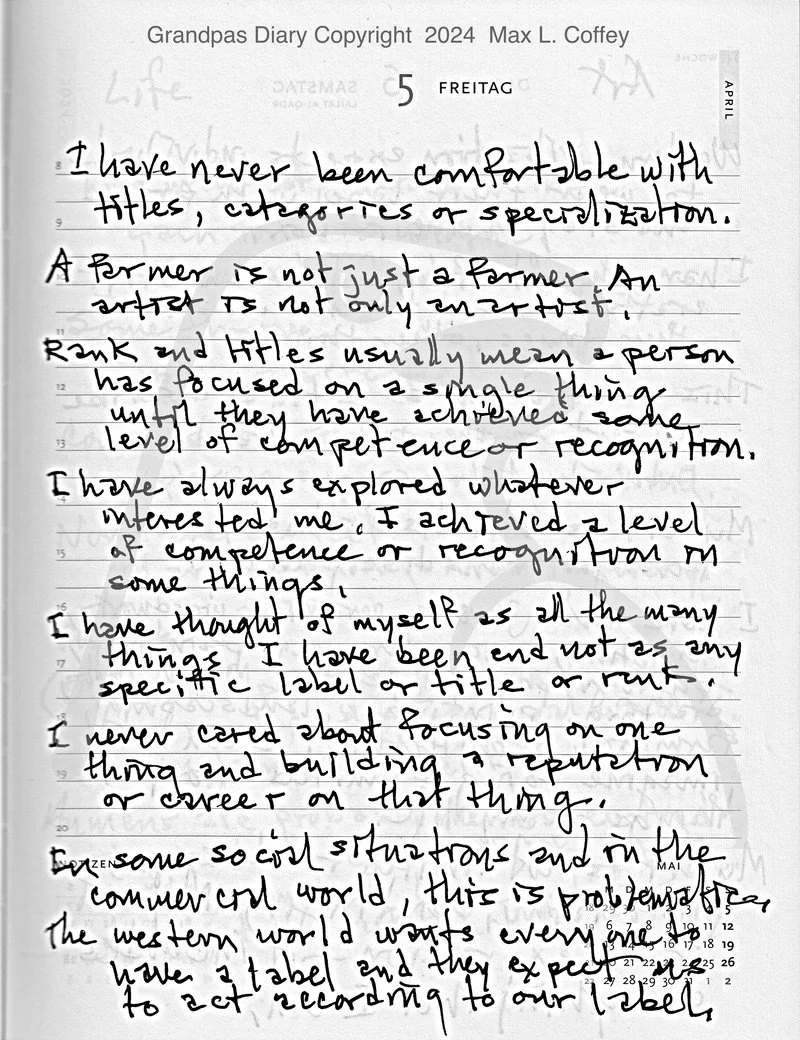 Grandpas Diary Copyright 2024 Max L. Coffey
5 FREITAG
APRIL
I have never been comfortable with
titles, categories or specialization.
A farmer is not just a farmer. An
artist is not only an artist.
Rank and titles usually mean a person
has focused on a single thing
until they have achieved some
level of competence or recognition.
I have always explored whatever
interested me. I achieved a level
of competence or recognition in
some things.
I have thought of myself as all the many
things I have been and not as any
specific label or title or rank.
I never cared about focusing on one
thing and building a reputation
or career on that thing.
In some social situations and in the
commercial world, this is problematic.
The western world wants everyone to
have a label and they expect us
to act according to our label.
NOTIZEN
MAI